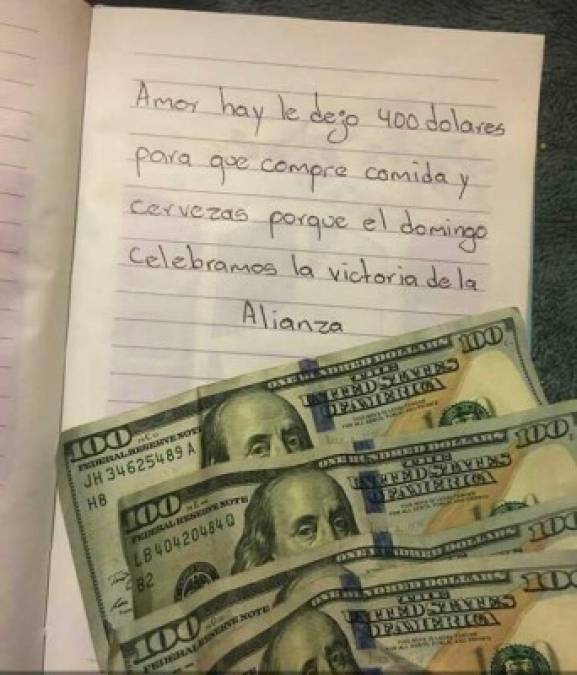 Amor hay le dejo 400 dolares
para que compre comida y
cervezas porque el domingo
celebramos la victoria de la
Alianza
100
ONE HUNDRED DOLLARS
100
FEDERAL RESERVE NOTE
THE
UNITED STATES
OF AMERICA
JH 34625489 A
H8
100
ONE HUNDRED DOLLARS
100
FEDERAL RESERVE NOTE
THE
UNITED STATES
OF AMERICA
LB40420484Q
B2
ONE HUNDRED DOLLARS
100
100
FEDERAL RESERVE NOTE
ONE HUNDRED DOLLARS
100
THE
UNITED STATES
OF AMERICA